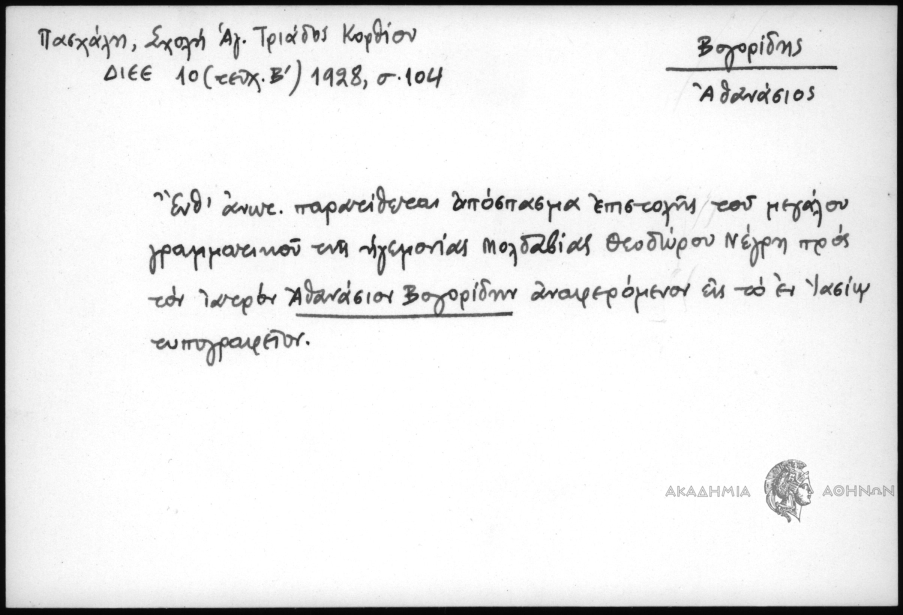 Πασχάλη, Σχολή Ἁγ. Τριάδος Κορθίου
ΔΙΕΕ 10 (τεῦχ. Β') 1928, σ. 104
Βογορίδης
Ἀθανάσιος
Ἔνθ' ἀνωτ. παρατίθεται ἀπόσπασμα ἐπιστολῆς τοῦ μεγάλου
γραμματικοῦ τῆς ἡγεμονίας Μολδαβίας Θεοδώρου Νέγρη πρὸς
τὸν ἰατρὸν Ἀθανάσιον Βογορίδην ἀναφερόμενον εἰς τὸ ἐν Ἰασίῳ
τυπογραφεῖον.
ΑΚΑΔΗΜΙΑ ΑΘΗΝΩΝ